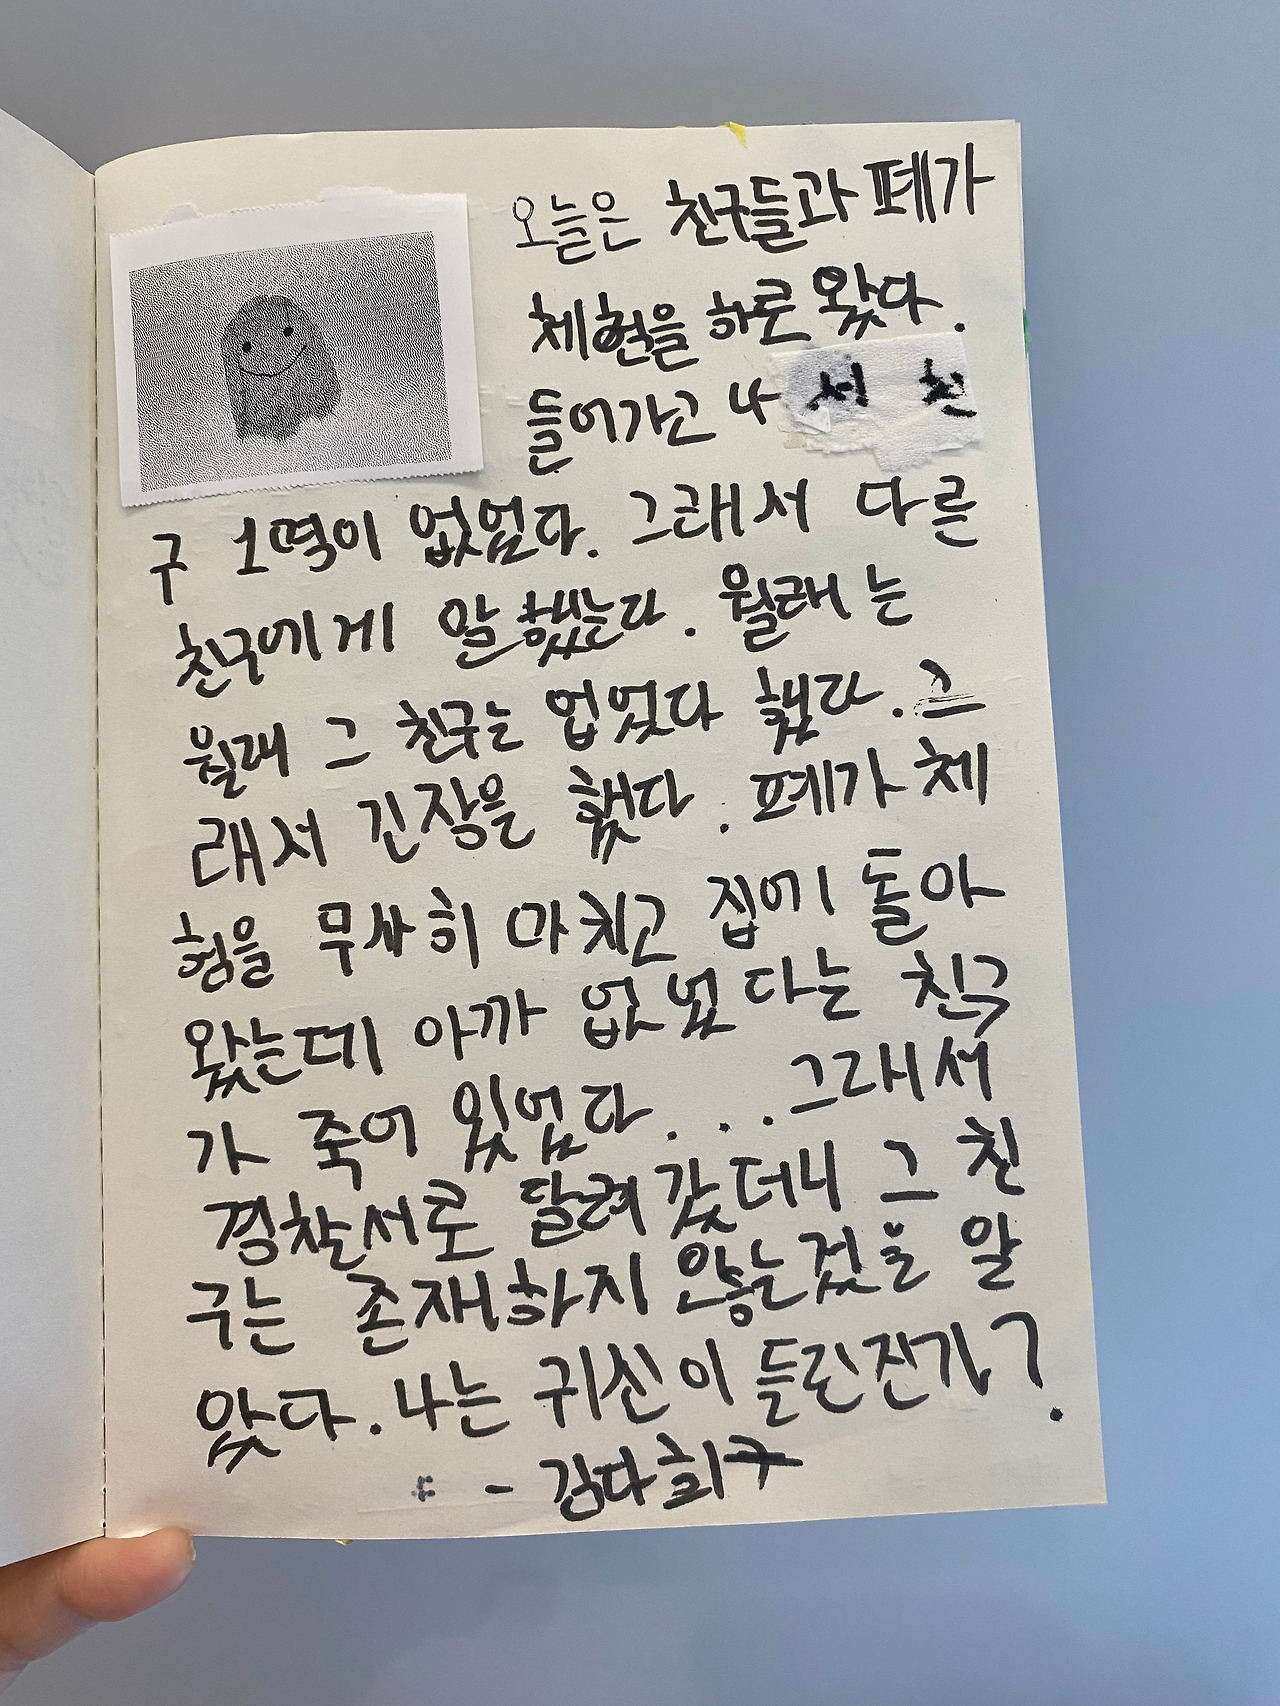 오늘은 친구들과 폐가
체험을 하로 왔다.
들어가고 나서 친
구 1명이 없었다. 그래서 다른
친구에게 말했는다. 월래는
월래 그 친구는 없었다 했다. 그
래서 긴장을 했다. 폐가 체
험을 무사히 마치고 집에 돌아
왔는데 아까 없었다는 친구
가 죽어 있었다....그래서
경찰서로 달려갔더니 그 친
구는 존재하지 않는것을 알
았다. 나는 귀신이 들린잔가?
- 김다희